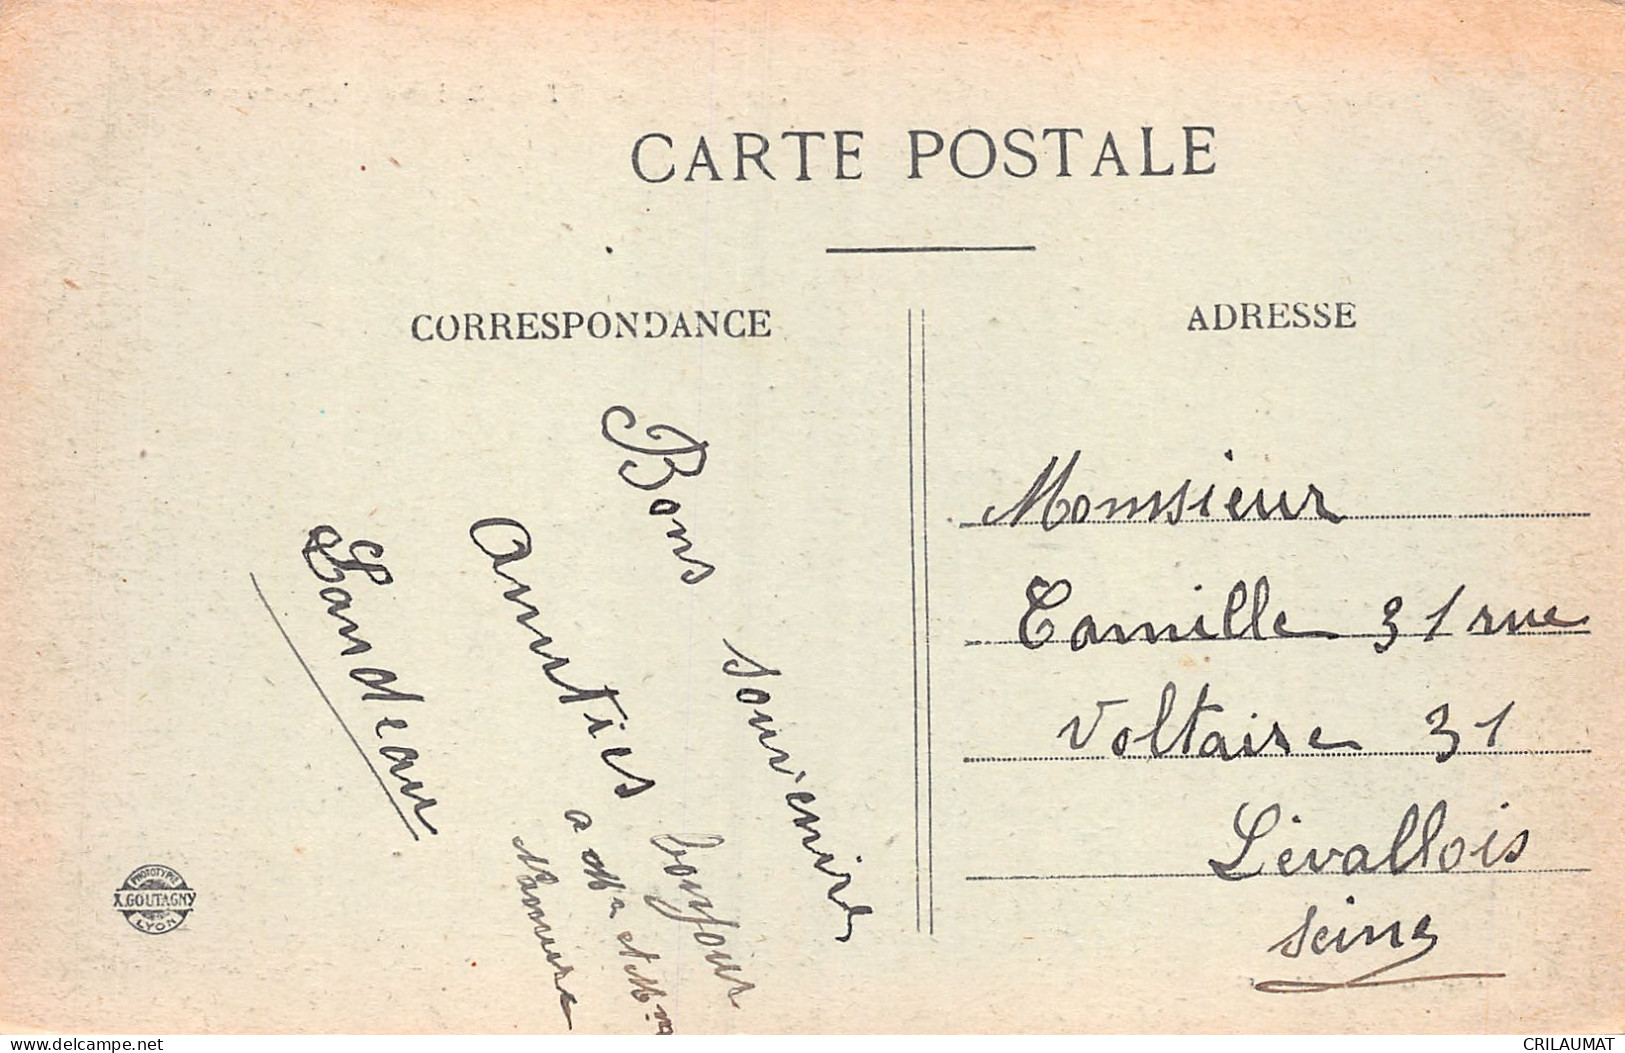 CARTE POSTALE
CORRESPONDANCE
ADRESSE
Bons souvenirs
Amitiés bonjour
a Mr et Mme
Landeau
Monsieur
Camille 31 rue
Voltaire 31
Levallois
Seine
PHOTOTYPIE
A. GOUTAGNY
LYON
www.delcampe.net
CRILAUMAT